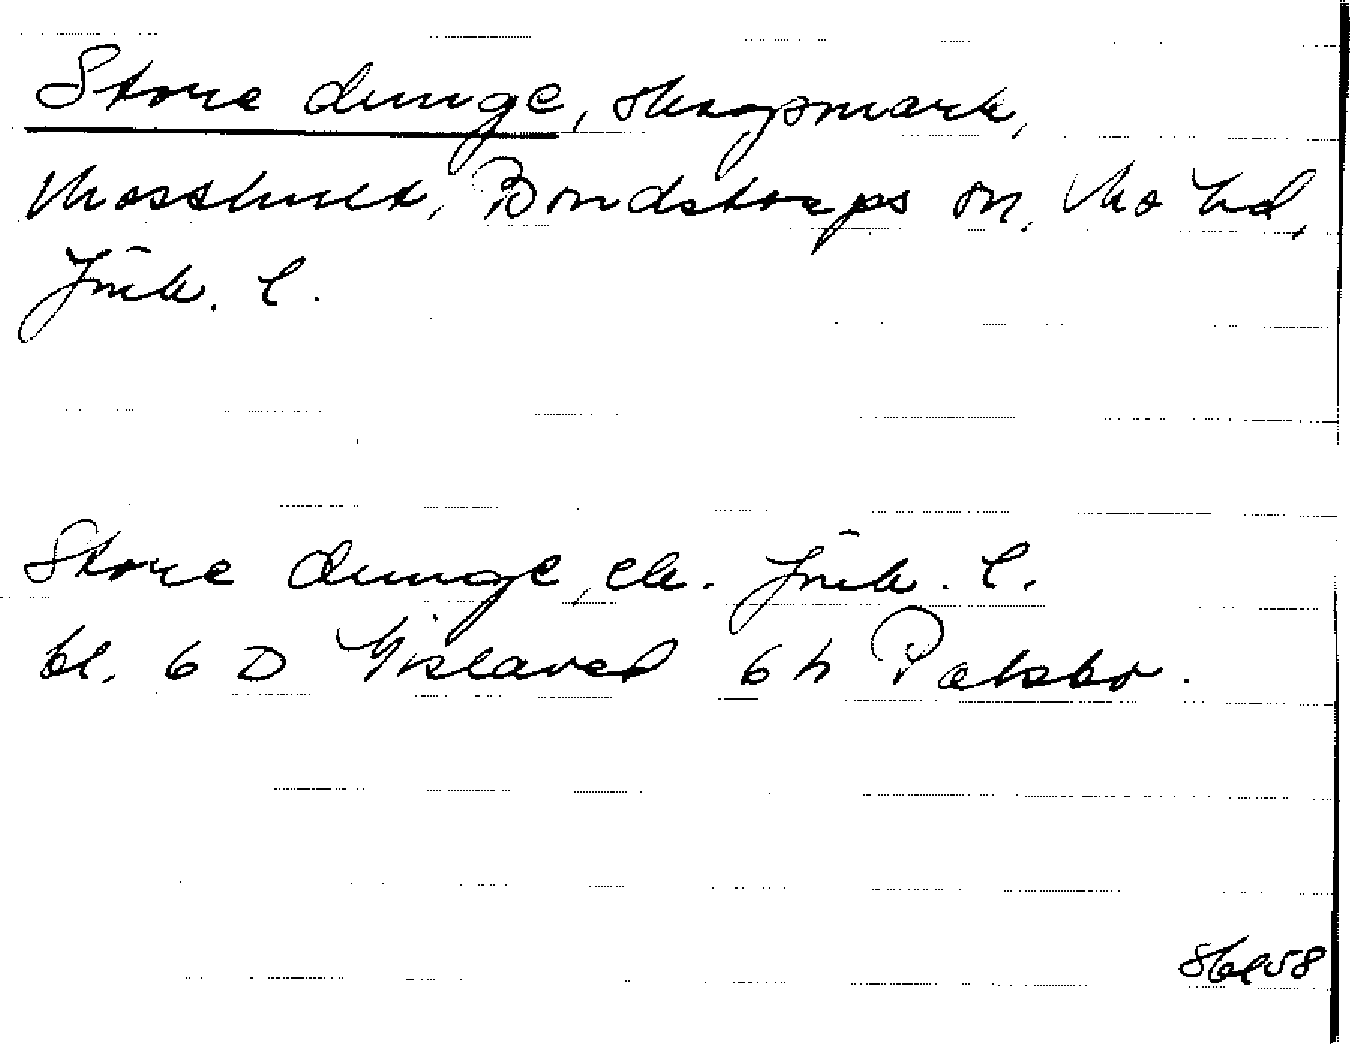 Store dunge, skogsmark,
Mosshult, Bondstorps sn, Mo hd,
Jönk. l.
Store dunge, ek. Jönk. l.
bl. 6 D Gislaved 6 h Palsbo.